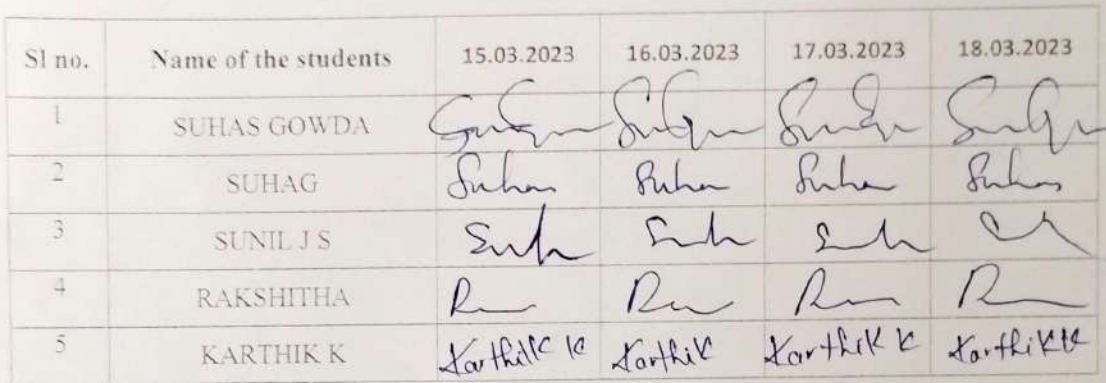 Sl no. Name of the students 15.03.2023 16.03.2023 17.03.2023 18.03.2023
1 SUHAS GOWDA
2 SUHAG Suhas Suha Suha Suhas
3 SUNIL J S
4 RAKSHITHA
5 KARTHIK K Karthik K Karthik Karthik K Karthik K